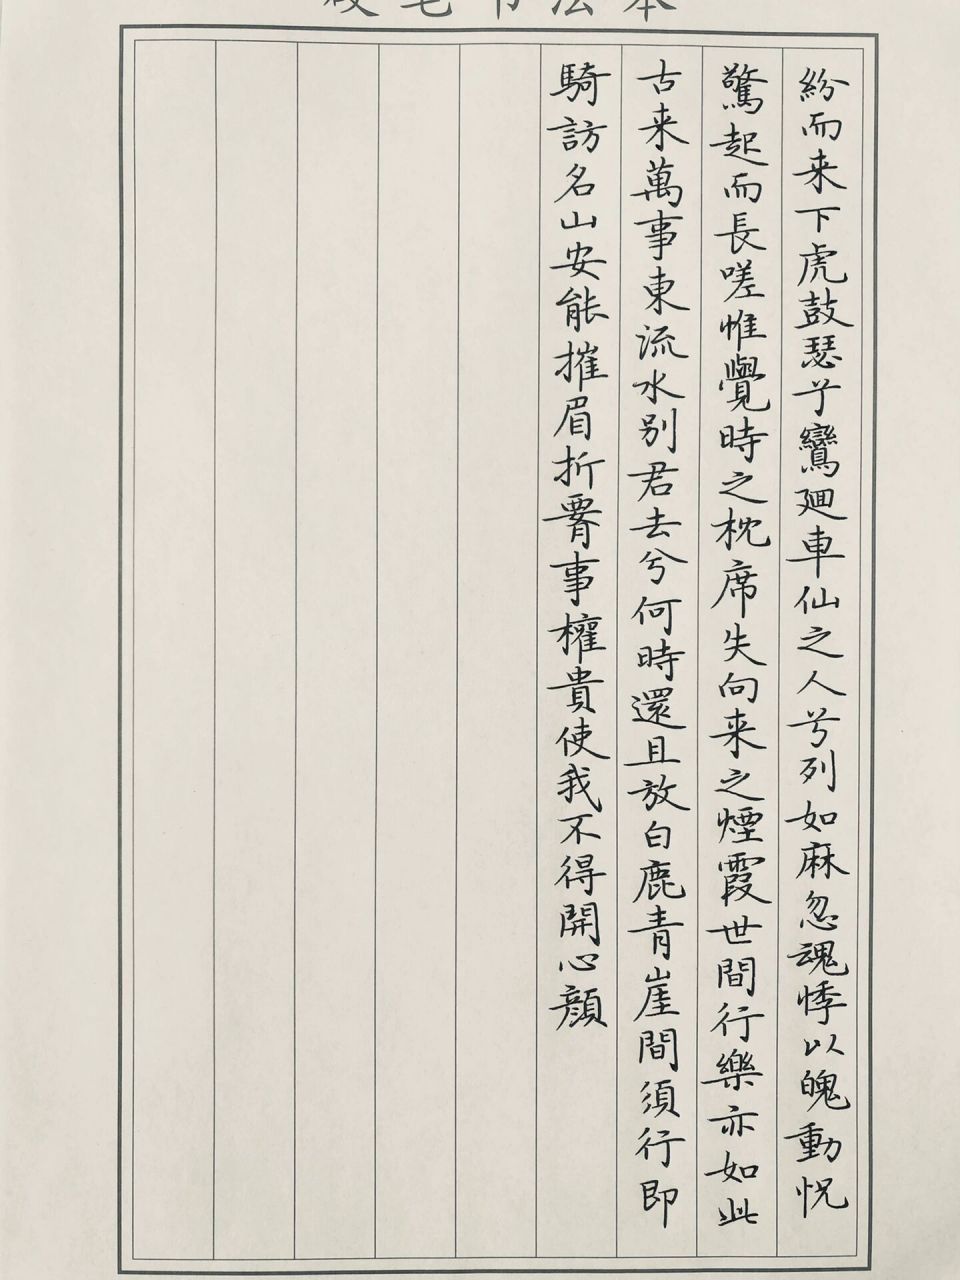 硬笔书法本
紛而来下虎鼓瑟兮鸞廻車仙之人兮列如麻忽魂悸以魄動怳
驚起而長嗟惟覺時之枕席失向来之煙霞世間行樂亦如此
古来萬事東流水别君去兮何時還且放白鹿青崖間須行即
騎訪名山安能摧眉折事權貴使我不得開心顔